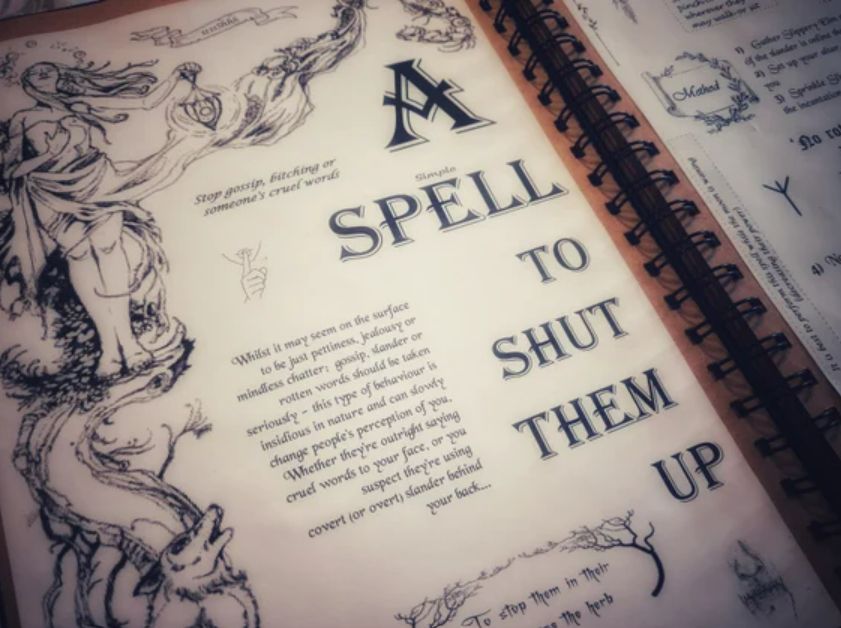 A
Simple
SPELL
TO
SHUT
THEM
UP
Stop gossip, bitching or
someone's cruel words
Whilst it may seem on the surface
to be just pettiness, jealousy or
mindless chatter; gossip, slander or
rotten words should be taken
seriously - this type of behaviour is
insidious in nature and can slowly
change people's perception of you.
Whether they're outright saying
cruel words to your face, or you
suspect they're using
covert (or overt) slander behind
your back...
To stop them in their
the herb
wherever they
may walk or sit
Method
1) Gather Slippery Elm
of the slander is online
2) Set up your altar
you
3) Sprinkle
the incantation
'No
4)
It is best to perform this spell while the moon is waning